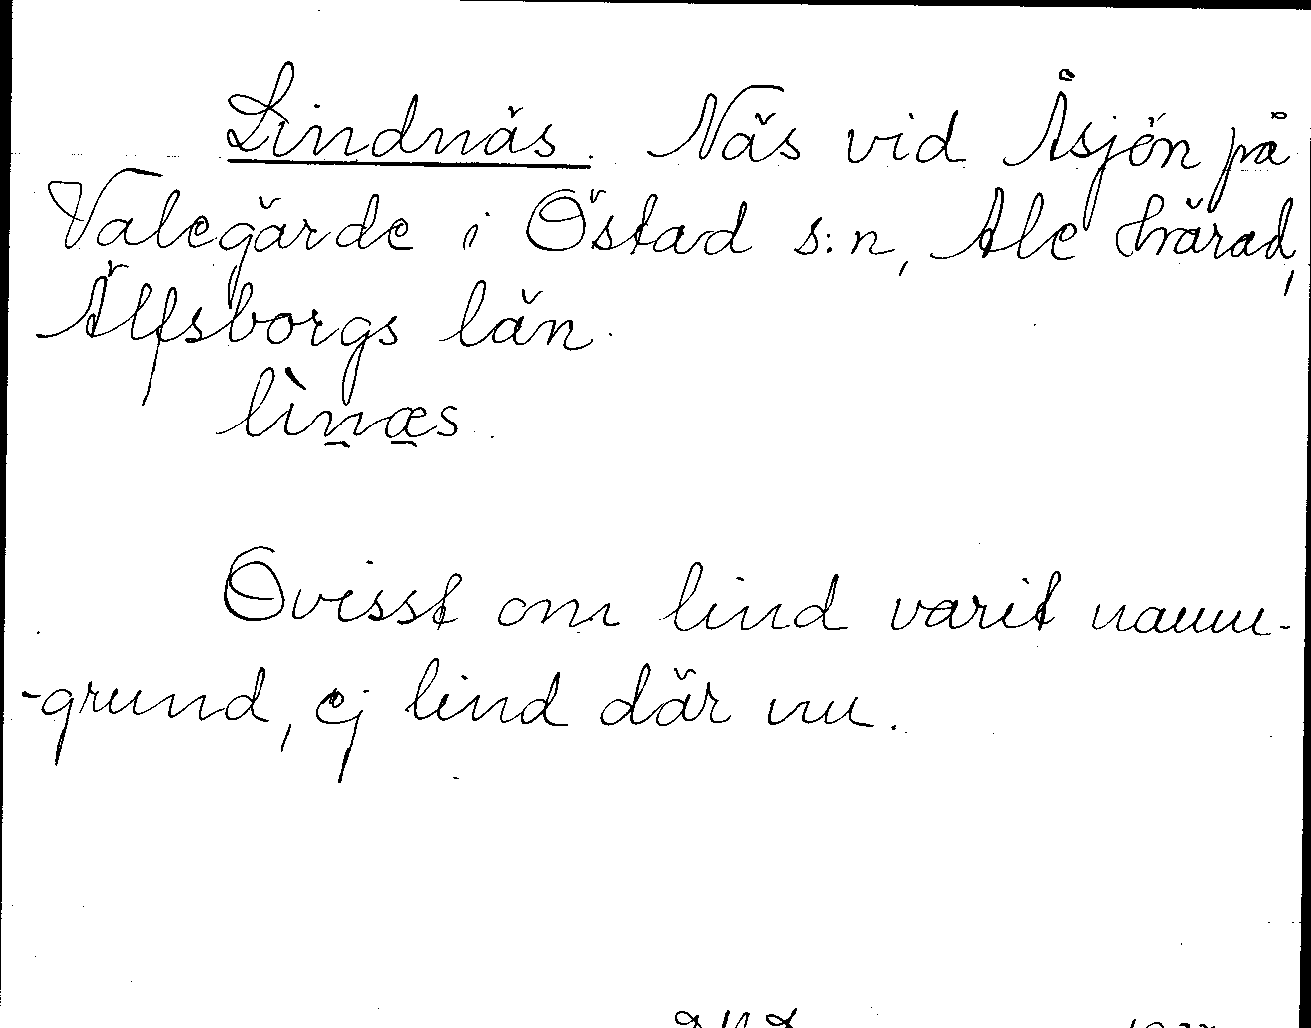 Lindnäs. Näs vid Åsjön på
Valegärde i Östad s:n, Ale härad,
Älfsborgs län.
lìn̠æ̠s.
Ovisst om lind varit namn-
-grund, ej lind där nu.